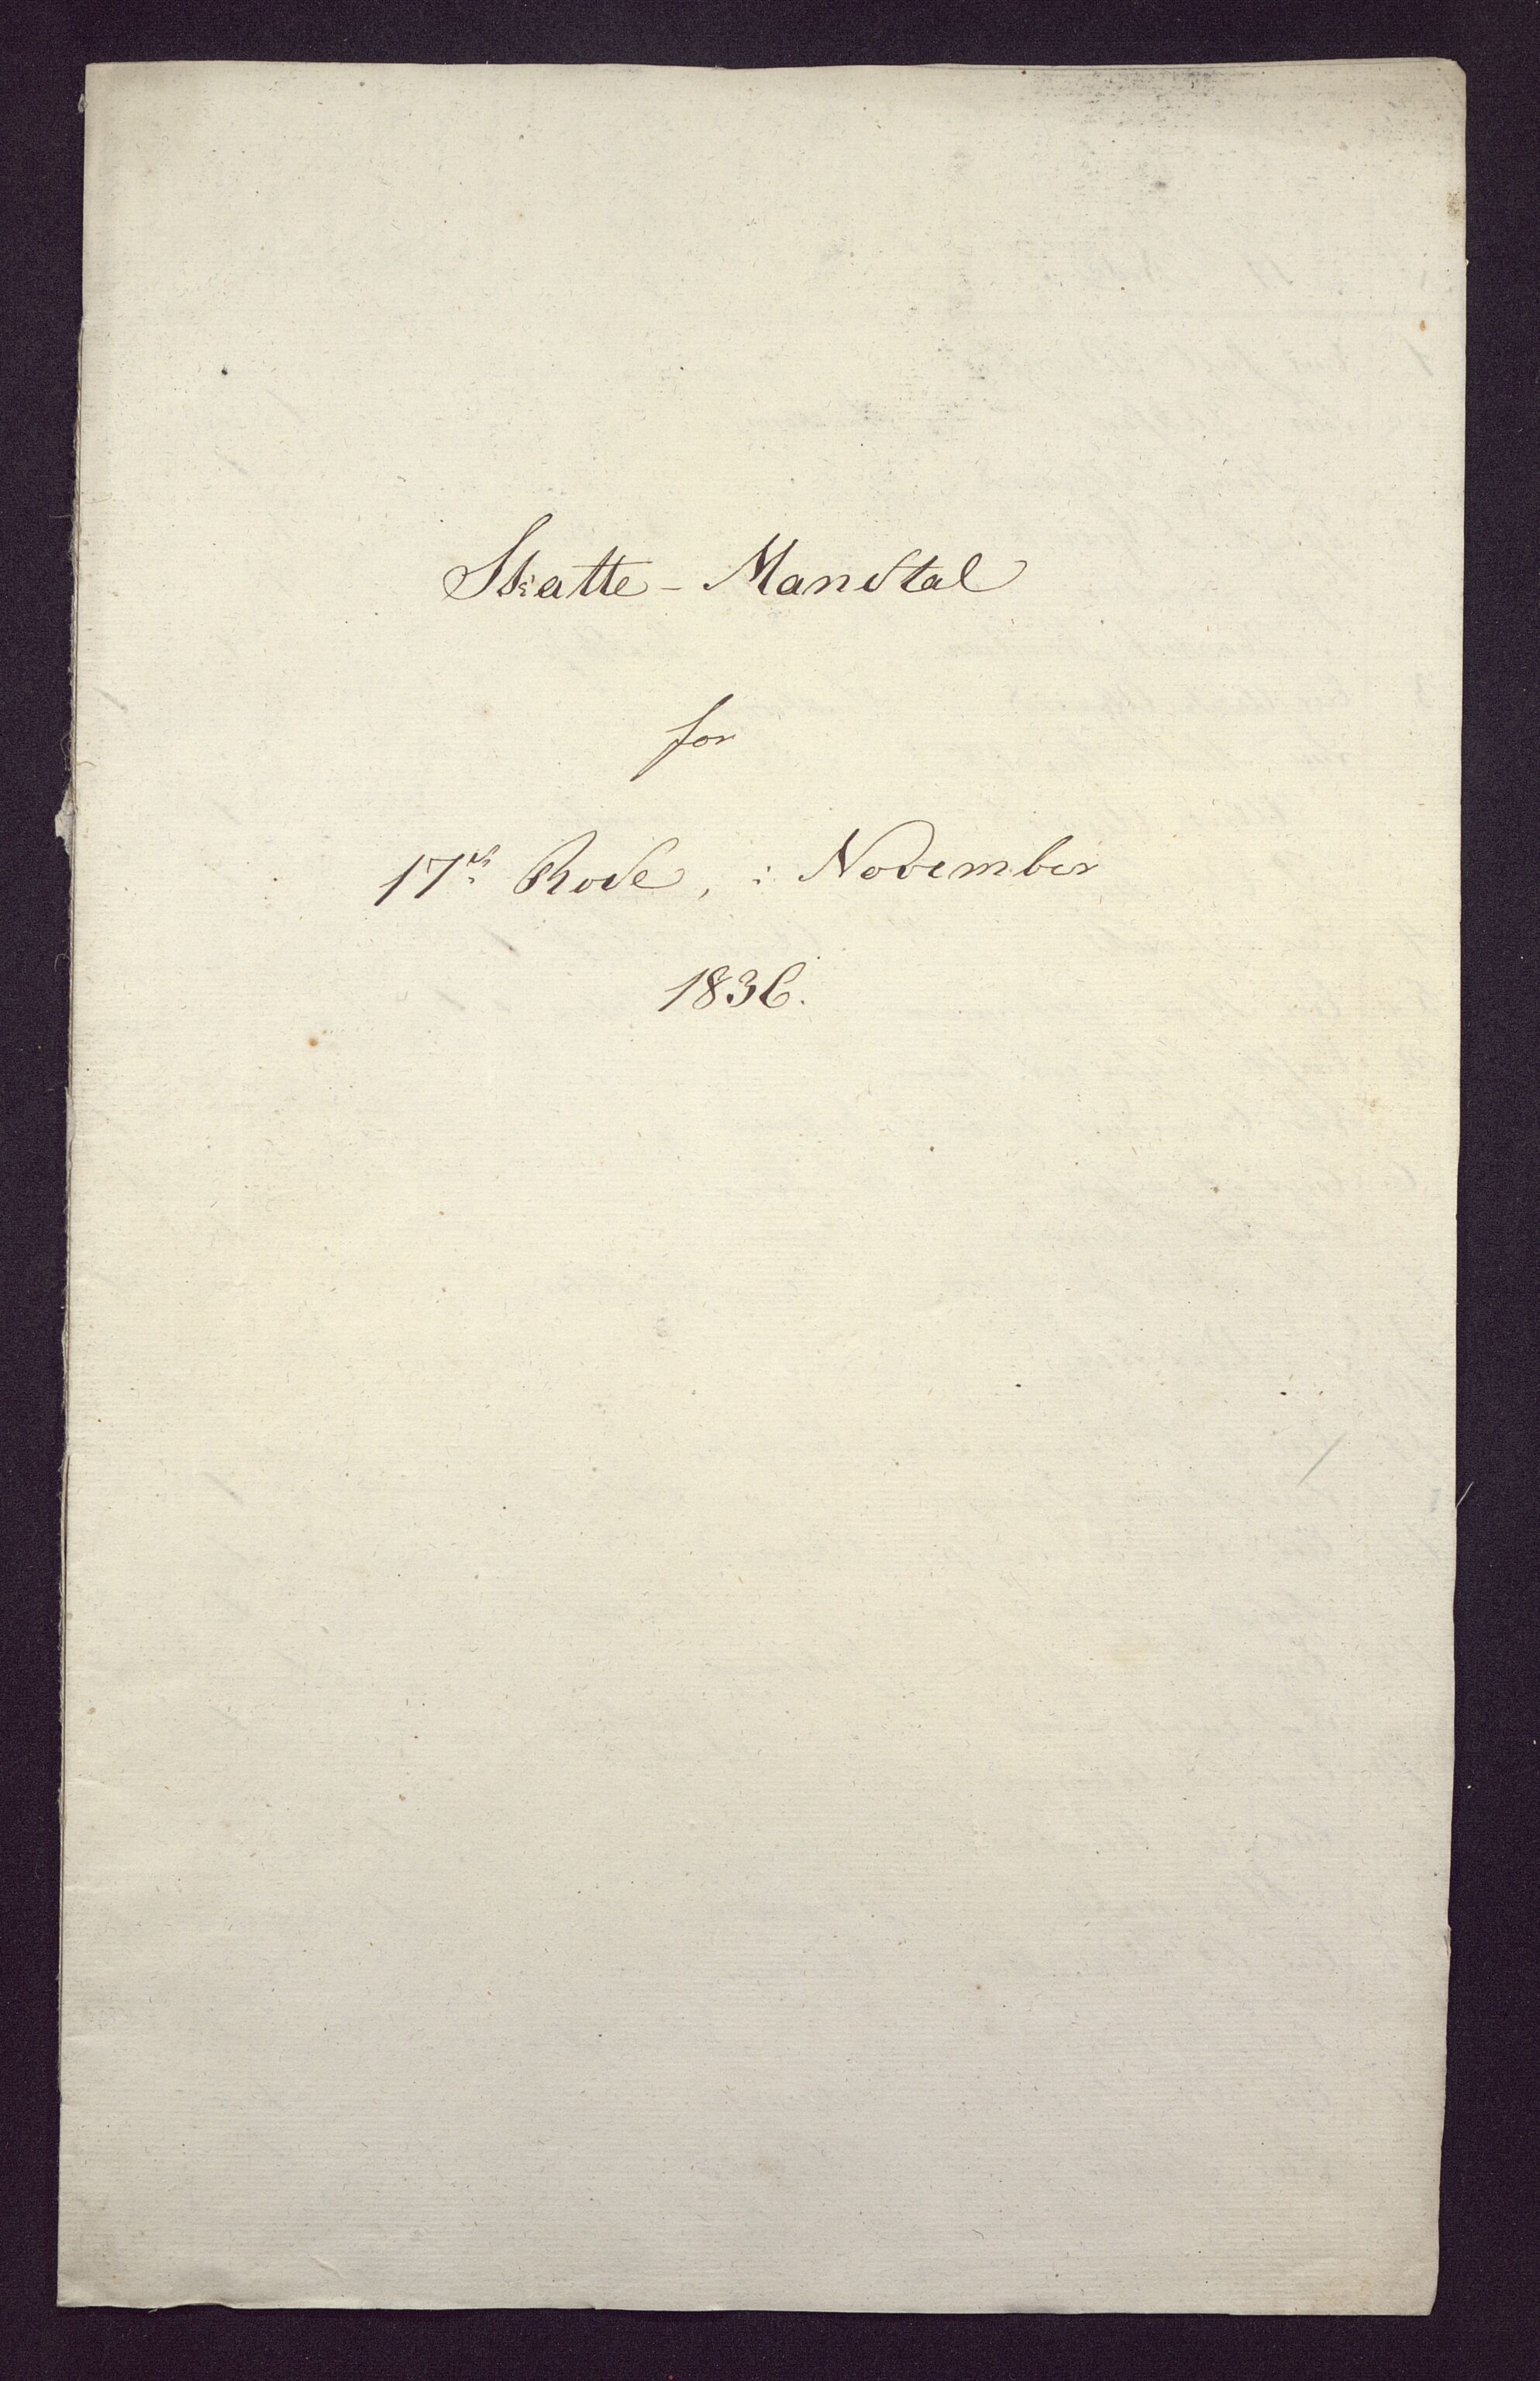 Skatte-Mandtal
for
17de Rode, i November
1836.